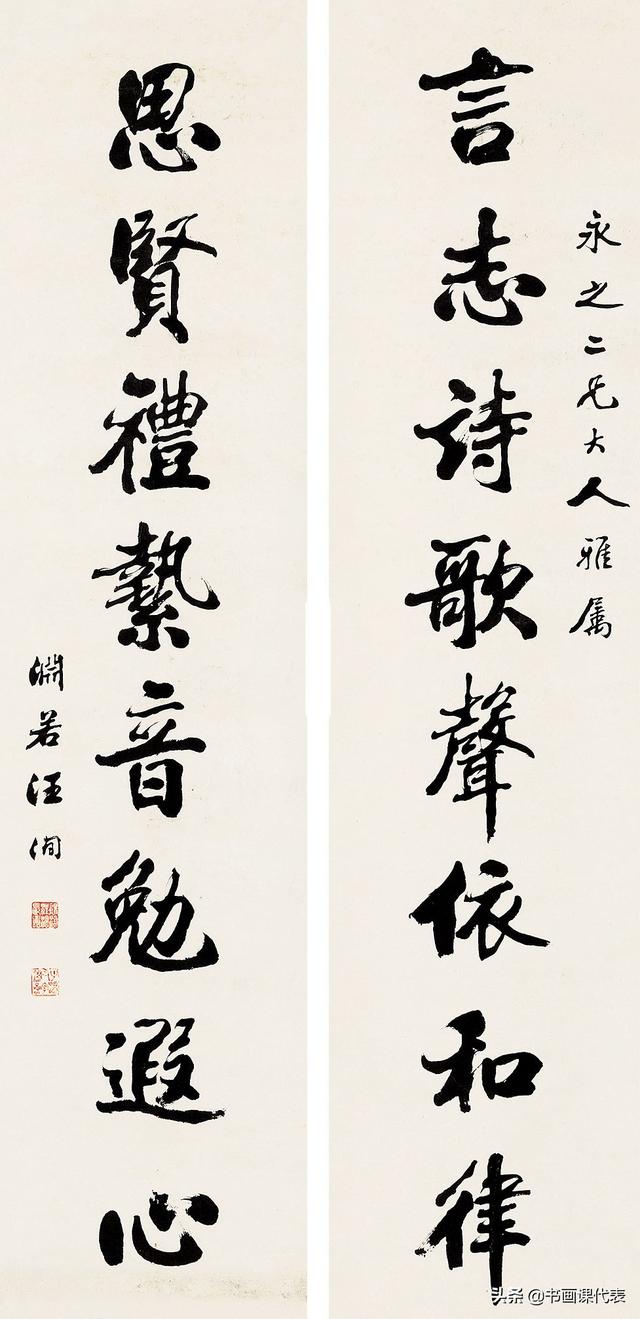 永之二兄大人雅属
言志詩歌聲依和律
思賢禮縶音勉遐心
淵若汪洵
头条 @书画课代表